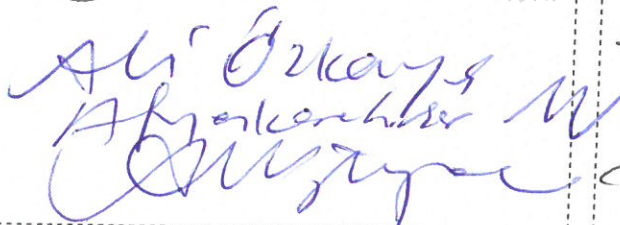 Ali Özkaya
Afyonkarahisar M